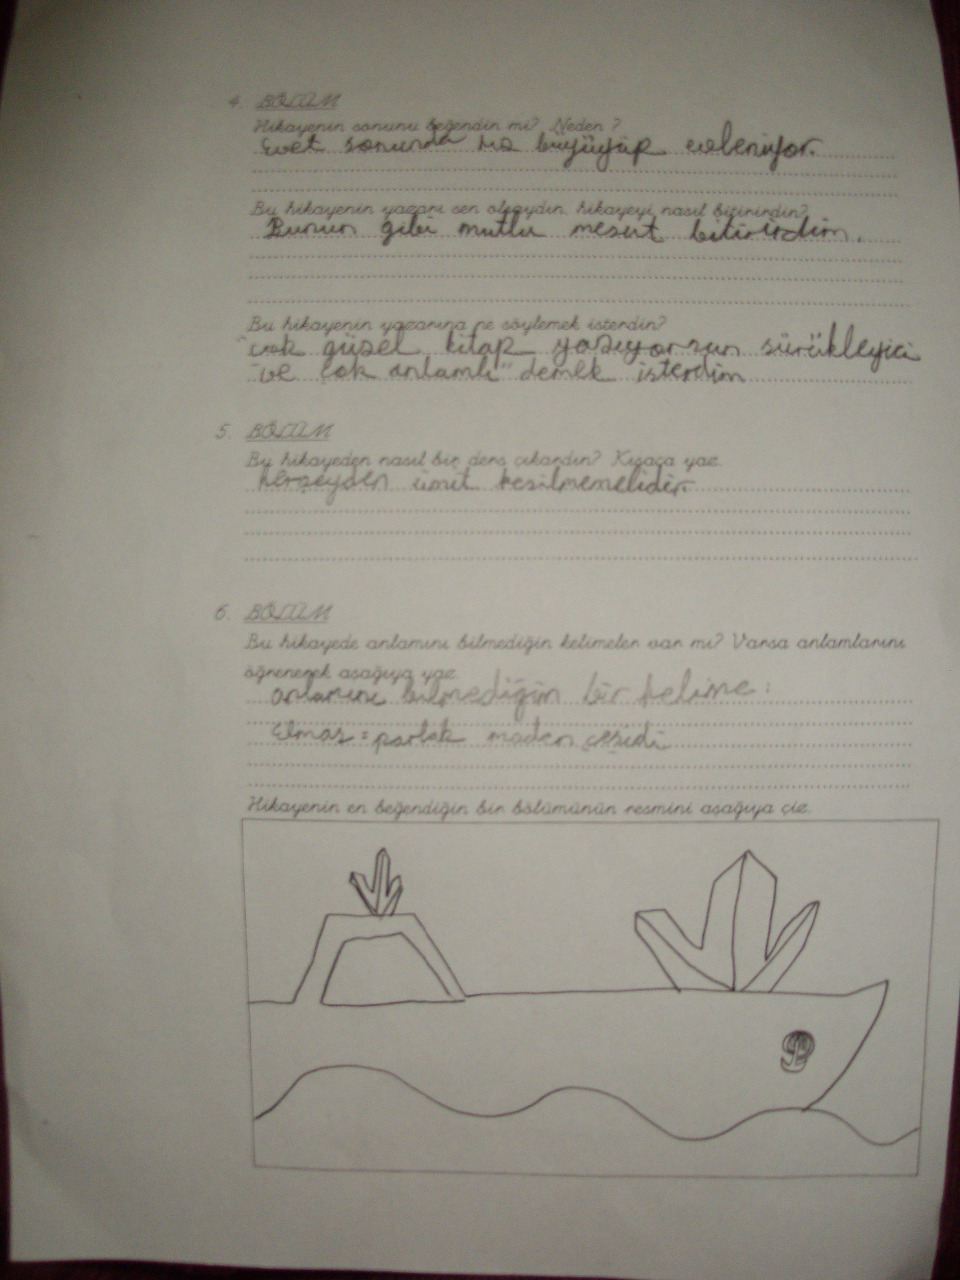 4. BÖLÜM
Hikayenin sonunu beğendin mi? Neden?
Evet sonunda büyüyüp evleniyor.
Bu hikayenin yazarı sen olsaydın, hikayeyi nasıl bitirirdin?
Bunun gibi mutlu mesut bitirirdim.
Bu hikayenin yazarına ne söylemek isterdin?
"çok güzel kitap yazıyorsun sürükleyici
ve çok anlamlı" demek isterdim
5. BÖLÜM
Bu hikayeden nasıl bir ders çıkardın? Kısaca yaz.
herşeyden ümit kesilmemelidir.
6. BÖLÜM
Bu hikayede anlamını bilmediğin kelimeler var mı? Varsa anlamlarını
öğrenerek aşağıya yaz.
anlamını bilmediğim bir kelime:
Elmas = parlak maden çeşidi
Hikayenin en beğendiğin bir bölümünün resmini aşağıya çiz.